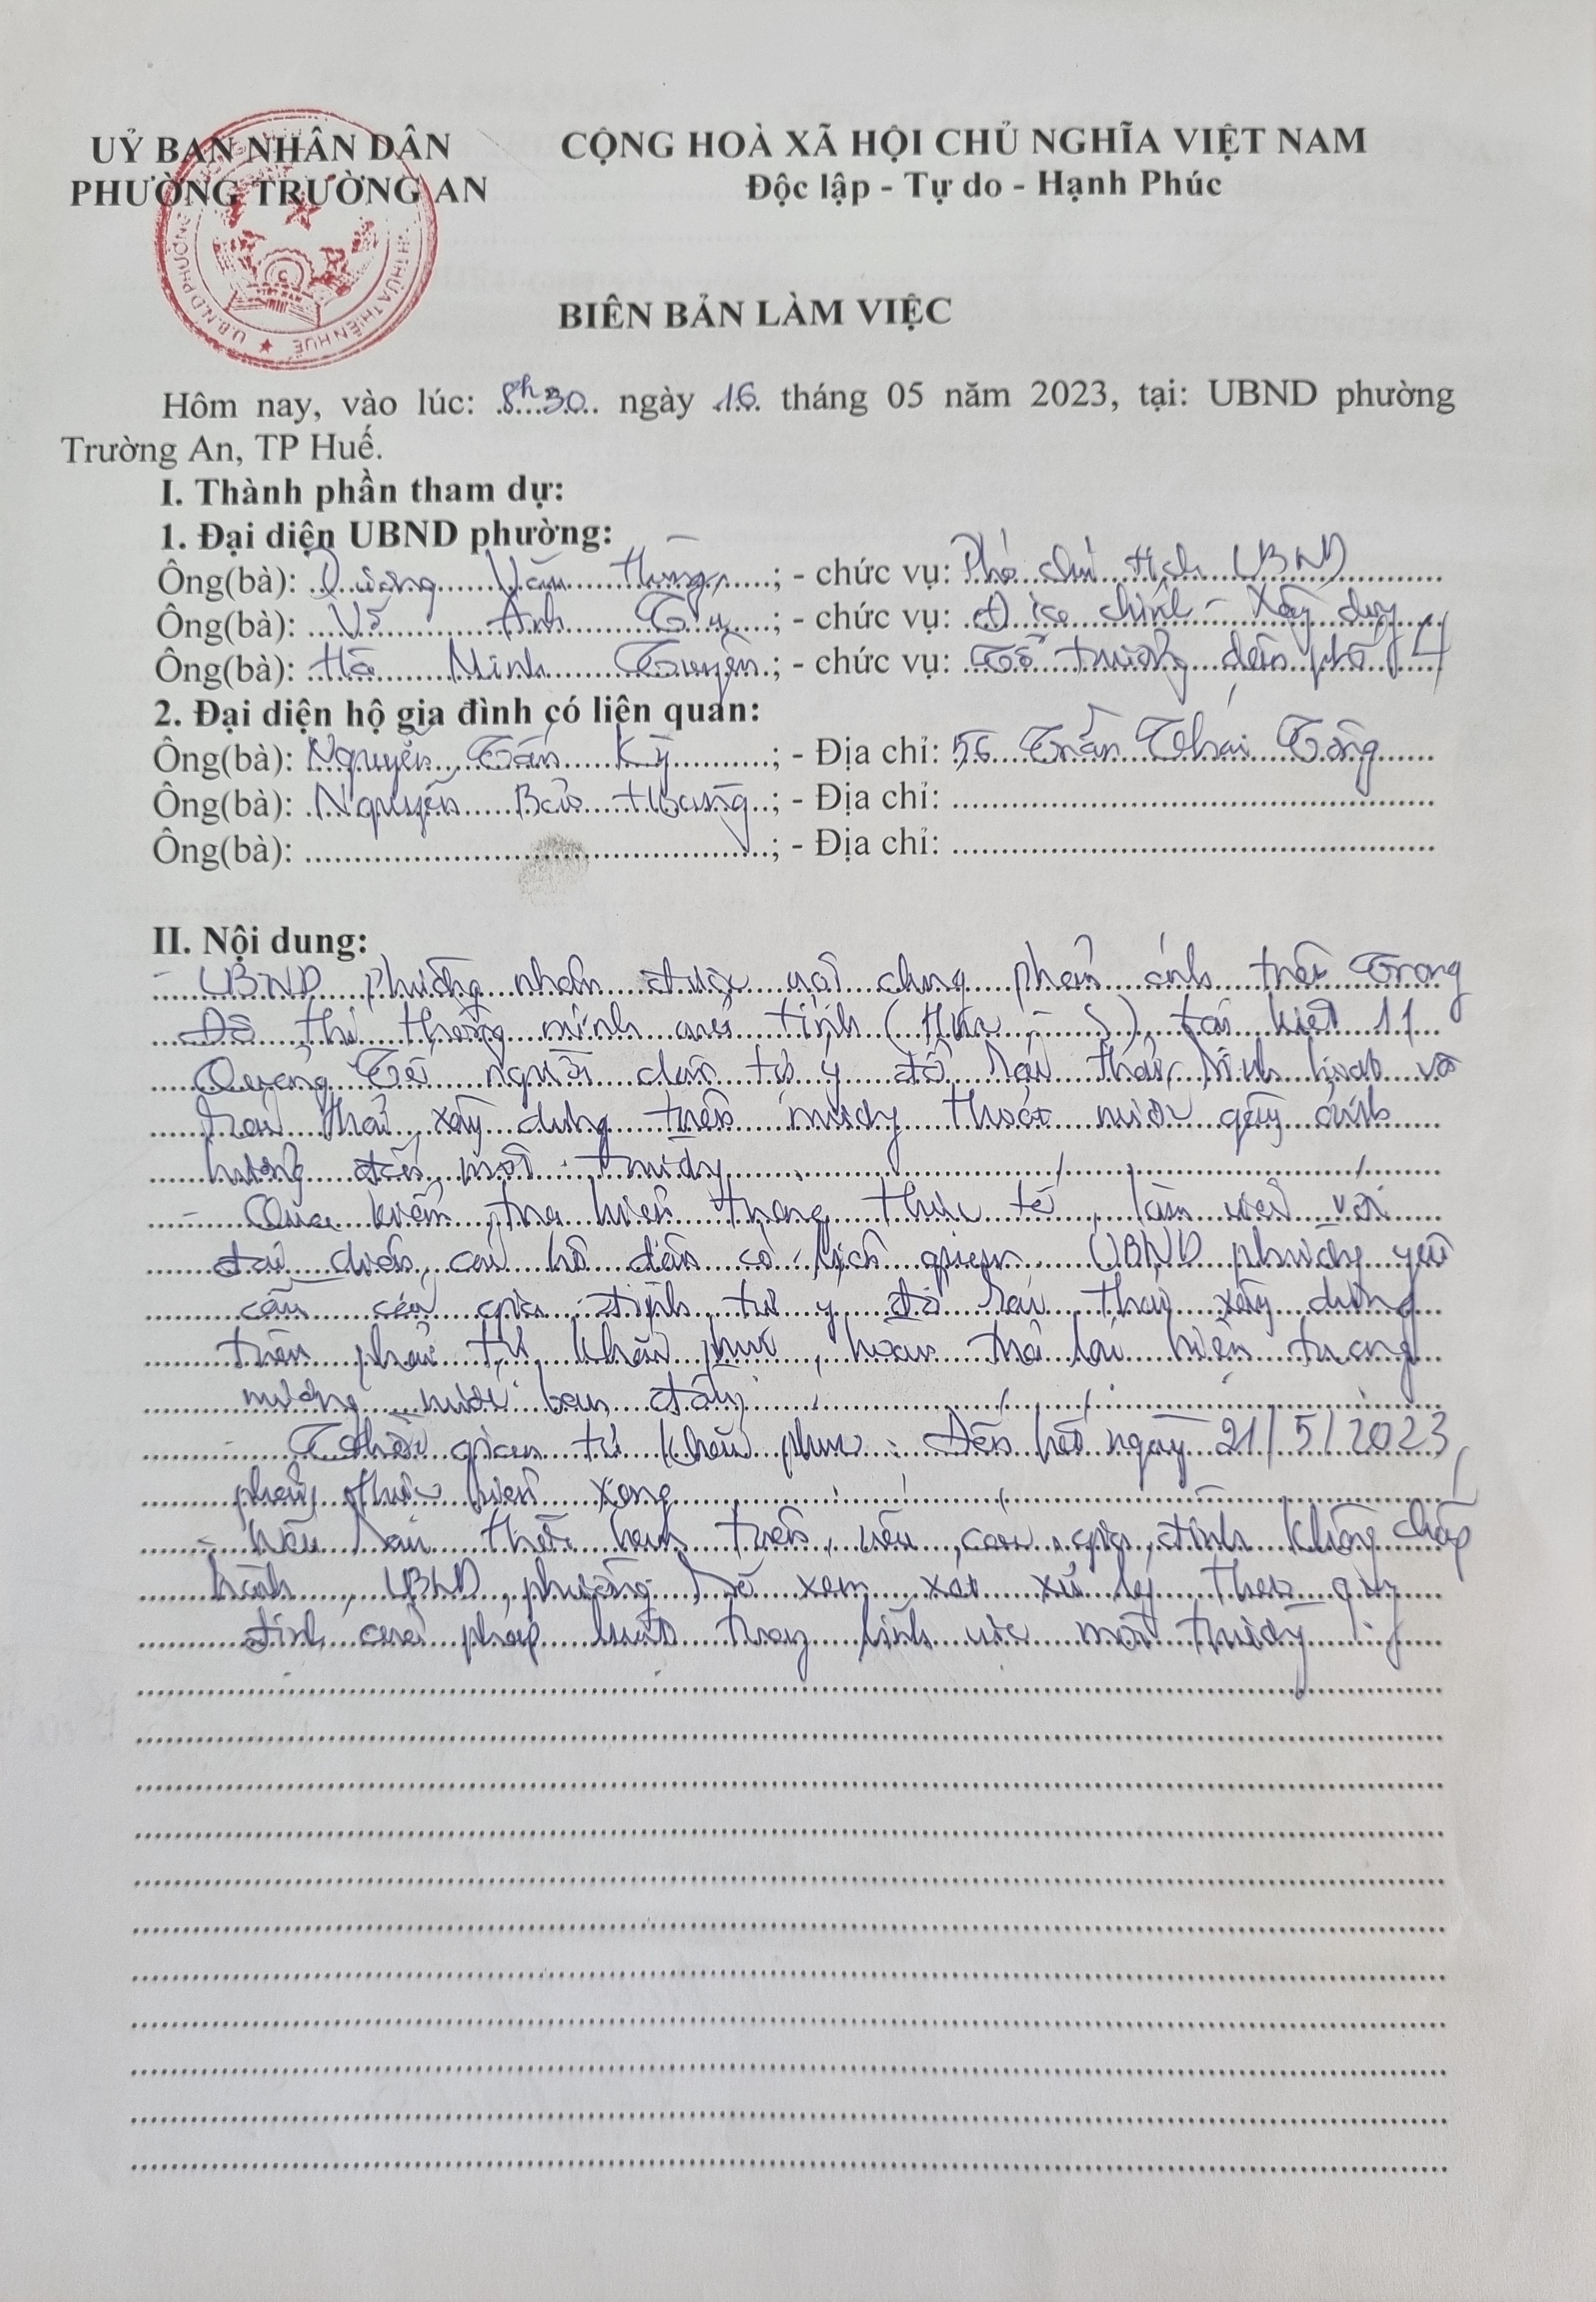 UỶ BAN NHÂN DÂN
PHƯỜNG TRƯỜNG AN
CỘNG HOÀ XÃ HỘI CHỦ NGHĨA VIỆT NAM
Độc lập - Tự do - Hạnh Phúc
U.B.N.D PHƯỜNG THỪA THIÊN HUẾ
BIÊN BẢN LÀM VIỆC
Hôm nay, vào lúc: 8h30 ngày 16 tháng 05 năm 2023, tại: UBND phường
Trường An, TP Huế.
I. Thành phần tham dự:
1. Đại diện UBND phường:
Ông(bà): Dương Văn Hùng; - chức vụ: Phó chủ tịch UBND
Ông(bà): Võ Anh; - chức vụ: Địa chính - Xây dựng
Ông(bà): Hà Minh Truyền; - chức vụ: Tổ trưởng dân phố 4
2. Đại diện hộ gia đình có liên quan:
Ông(bà): Nguyễn Tấn Kỳ; - Địa chỉ: 56 Trần Thái Tông
Ông(bà): Nguyễn Bảo Hoàng; - Địa chỉ:
Ông(bà): ; - Địa chỉ:
II. Nội dung:
- UBND phường nhận được nội dung phản ánh trên Trang
Đô thị thông minh của tỉnh (Hue - S) tại kiệt 11
Quảng Tế người dân tự ý đổ rác thải sinh hoạt và
rác thải xây dựng trên mương thoát nước gây ảnh
hưởng đến môi trường
- Qua kiểm tra hiện trạng thực tế, làm việc với
đại diện các hộ dân có liên quan, UBND phường yêu
cầu các gia đình tự ý đổ rác thải xây dựng
trên phải tự khắc phục, hoàn trả lại hiện trạng
mương nước ban đầu
- Thời gian tự khắc phục: Đến hết ngày 21/5/2023
phải thực hiện xong
- Nếu sau thời hạn trên, nếu các gia đình không chấp
hành, UBND phường sẽ xem xét xử lý theo quy
định của pháp luật trong lĩnh vực môi trường